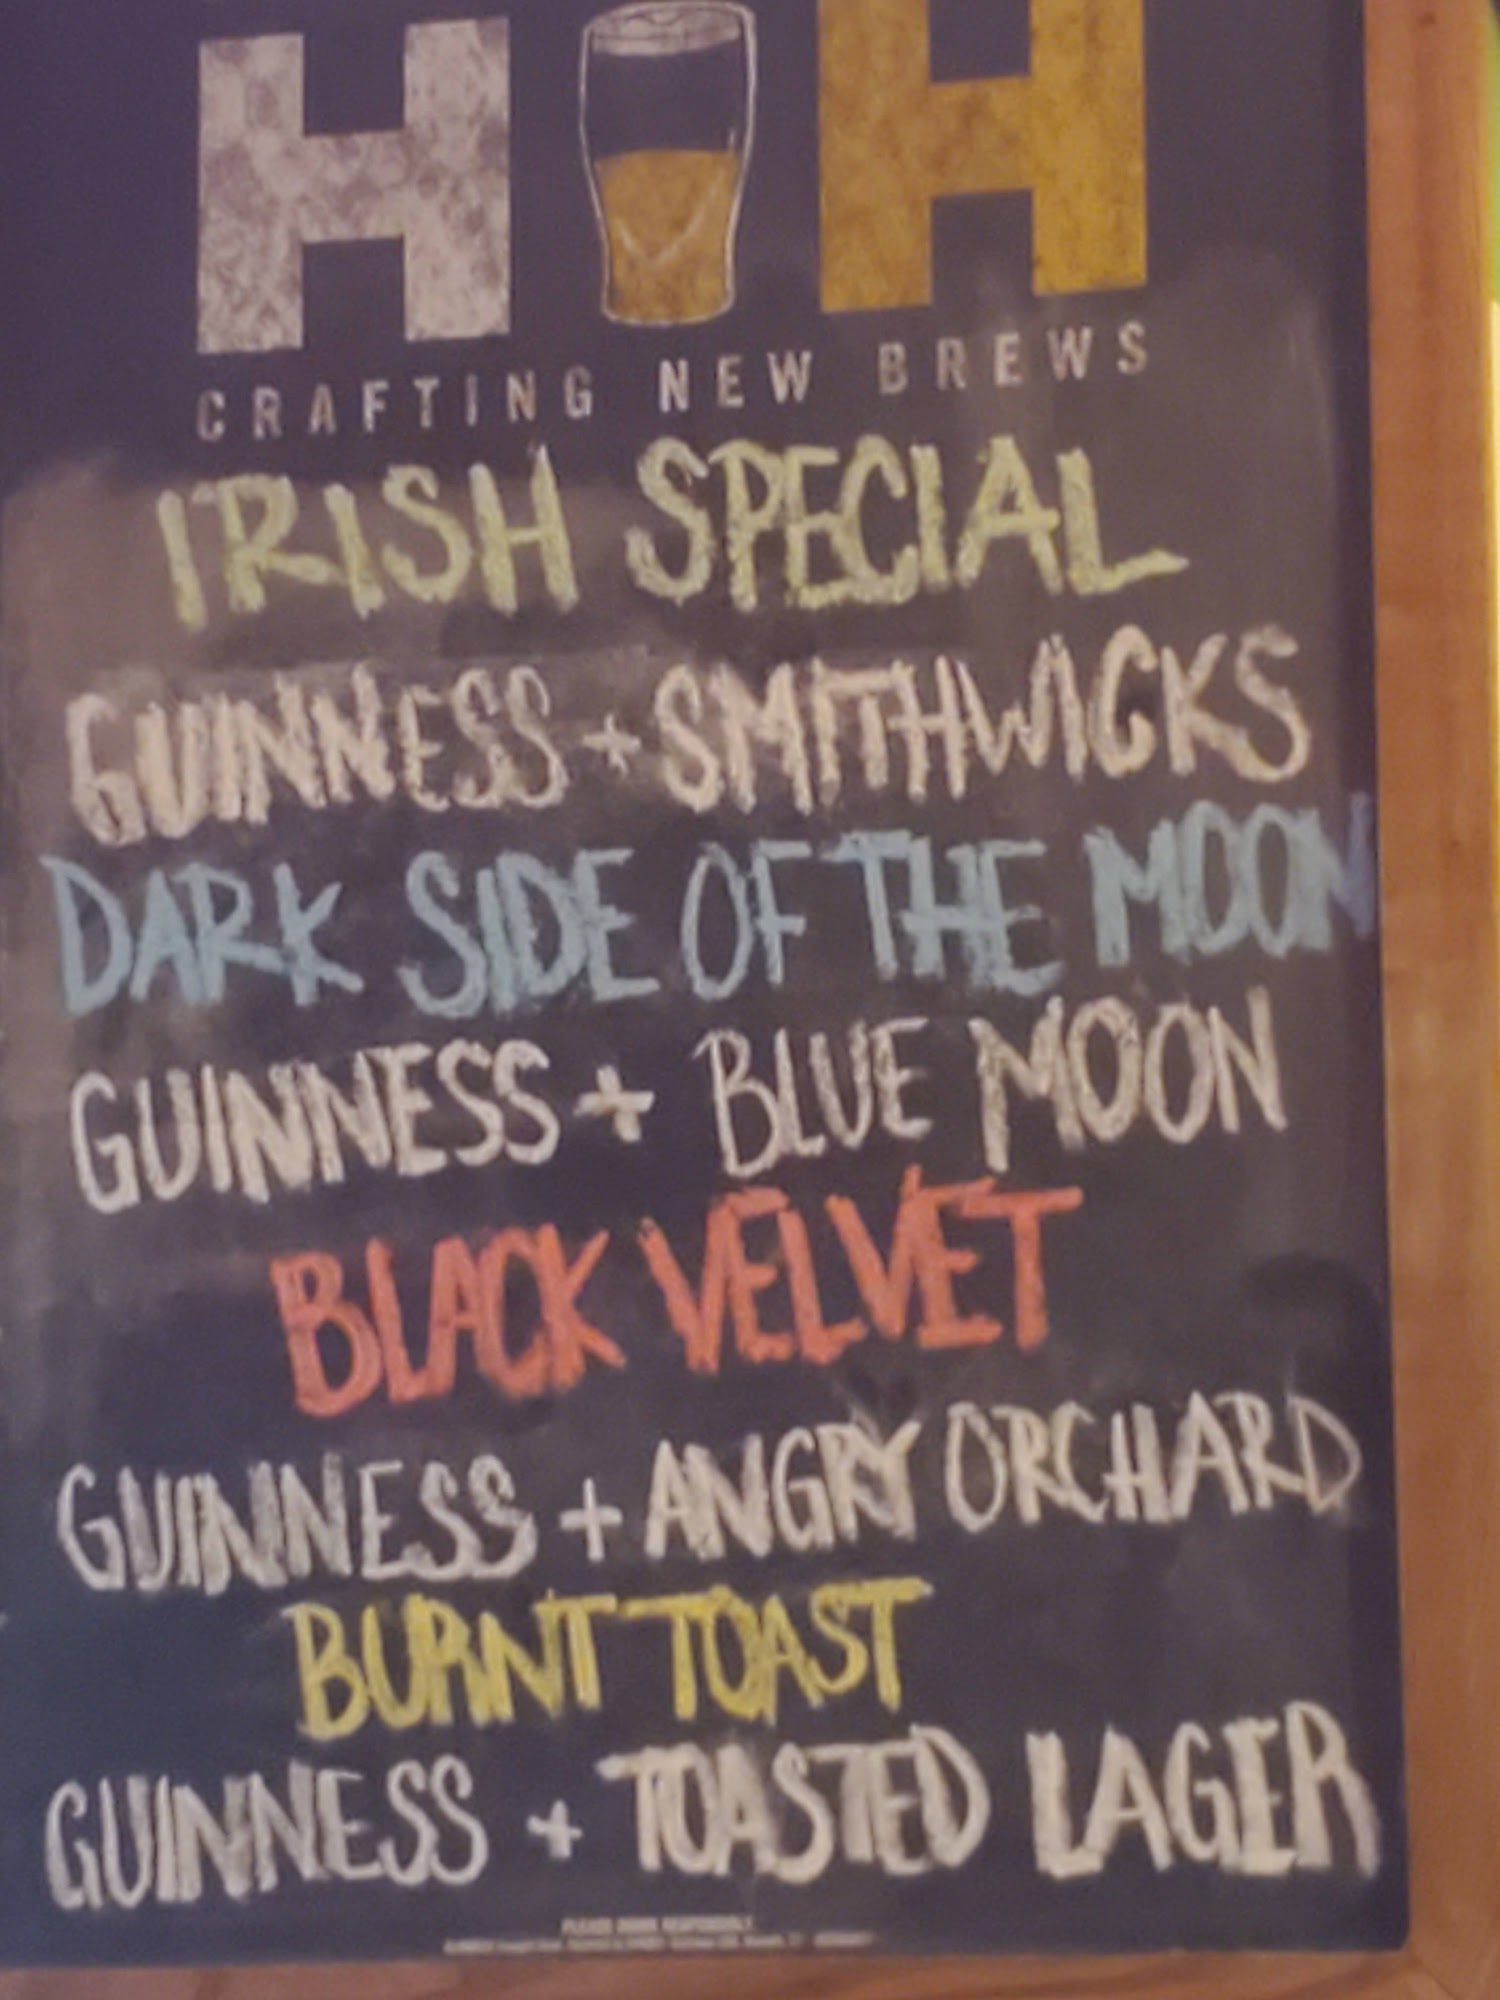 H H
CRAFTING NEW BREWS
IRISH SPECIAL
GUINNESS + SMITHWICKS
DARK SIDE OF THE MOON
GUINNESS + BLUE MOON
BLACK VELVET
GUINNESS + ANGRY ORCHARD
BURNT TOAST
GUINNESS + TOASTED LAGER
PLEASE DRINK RESPONSIBLY.